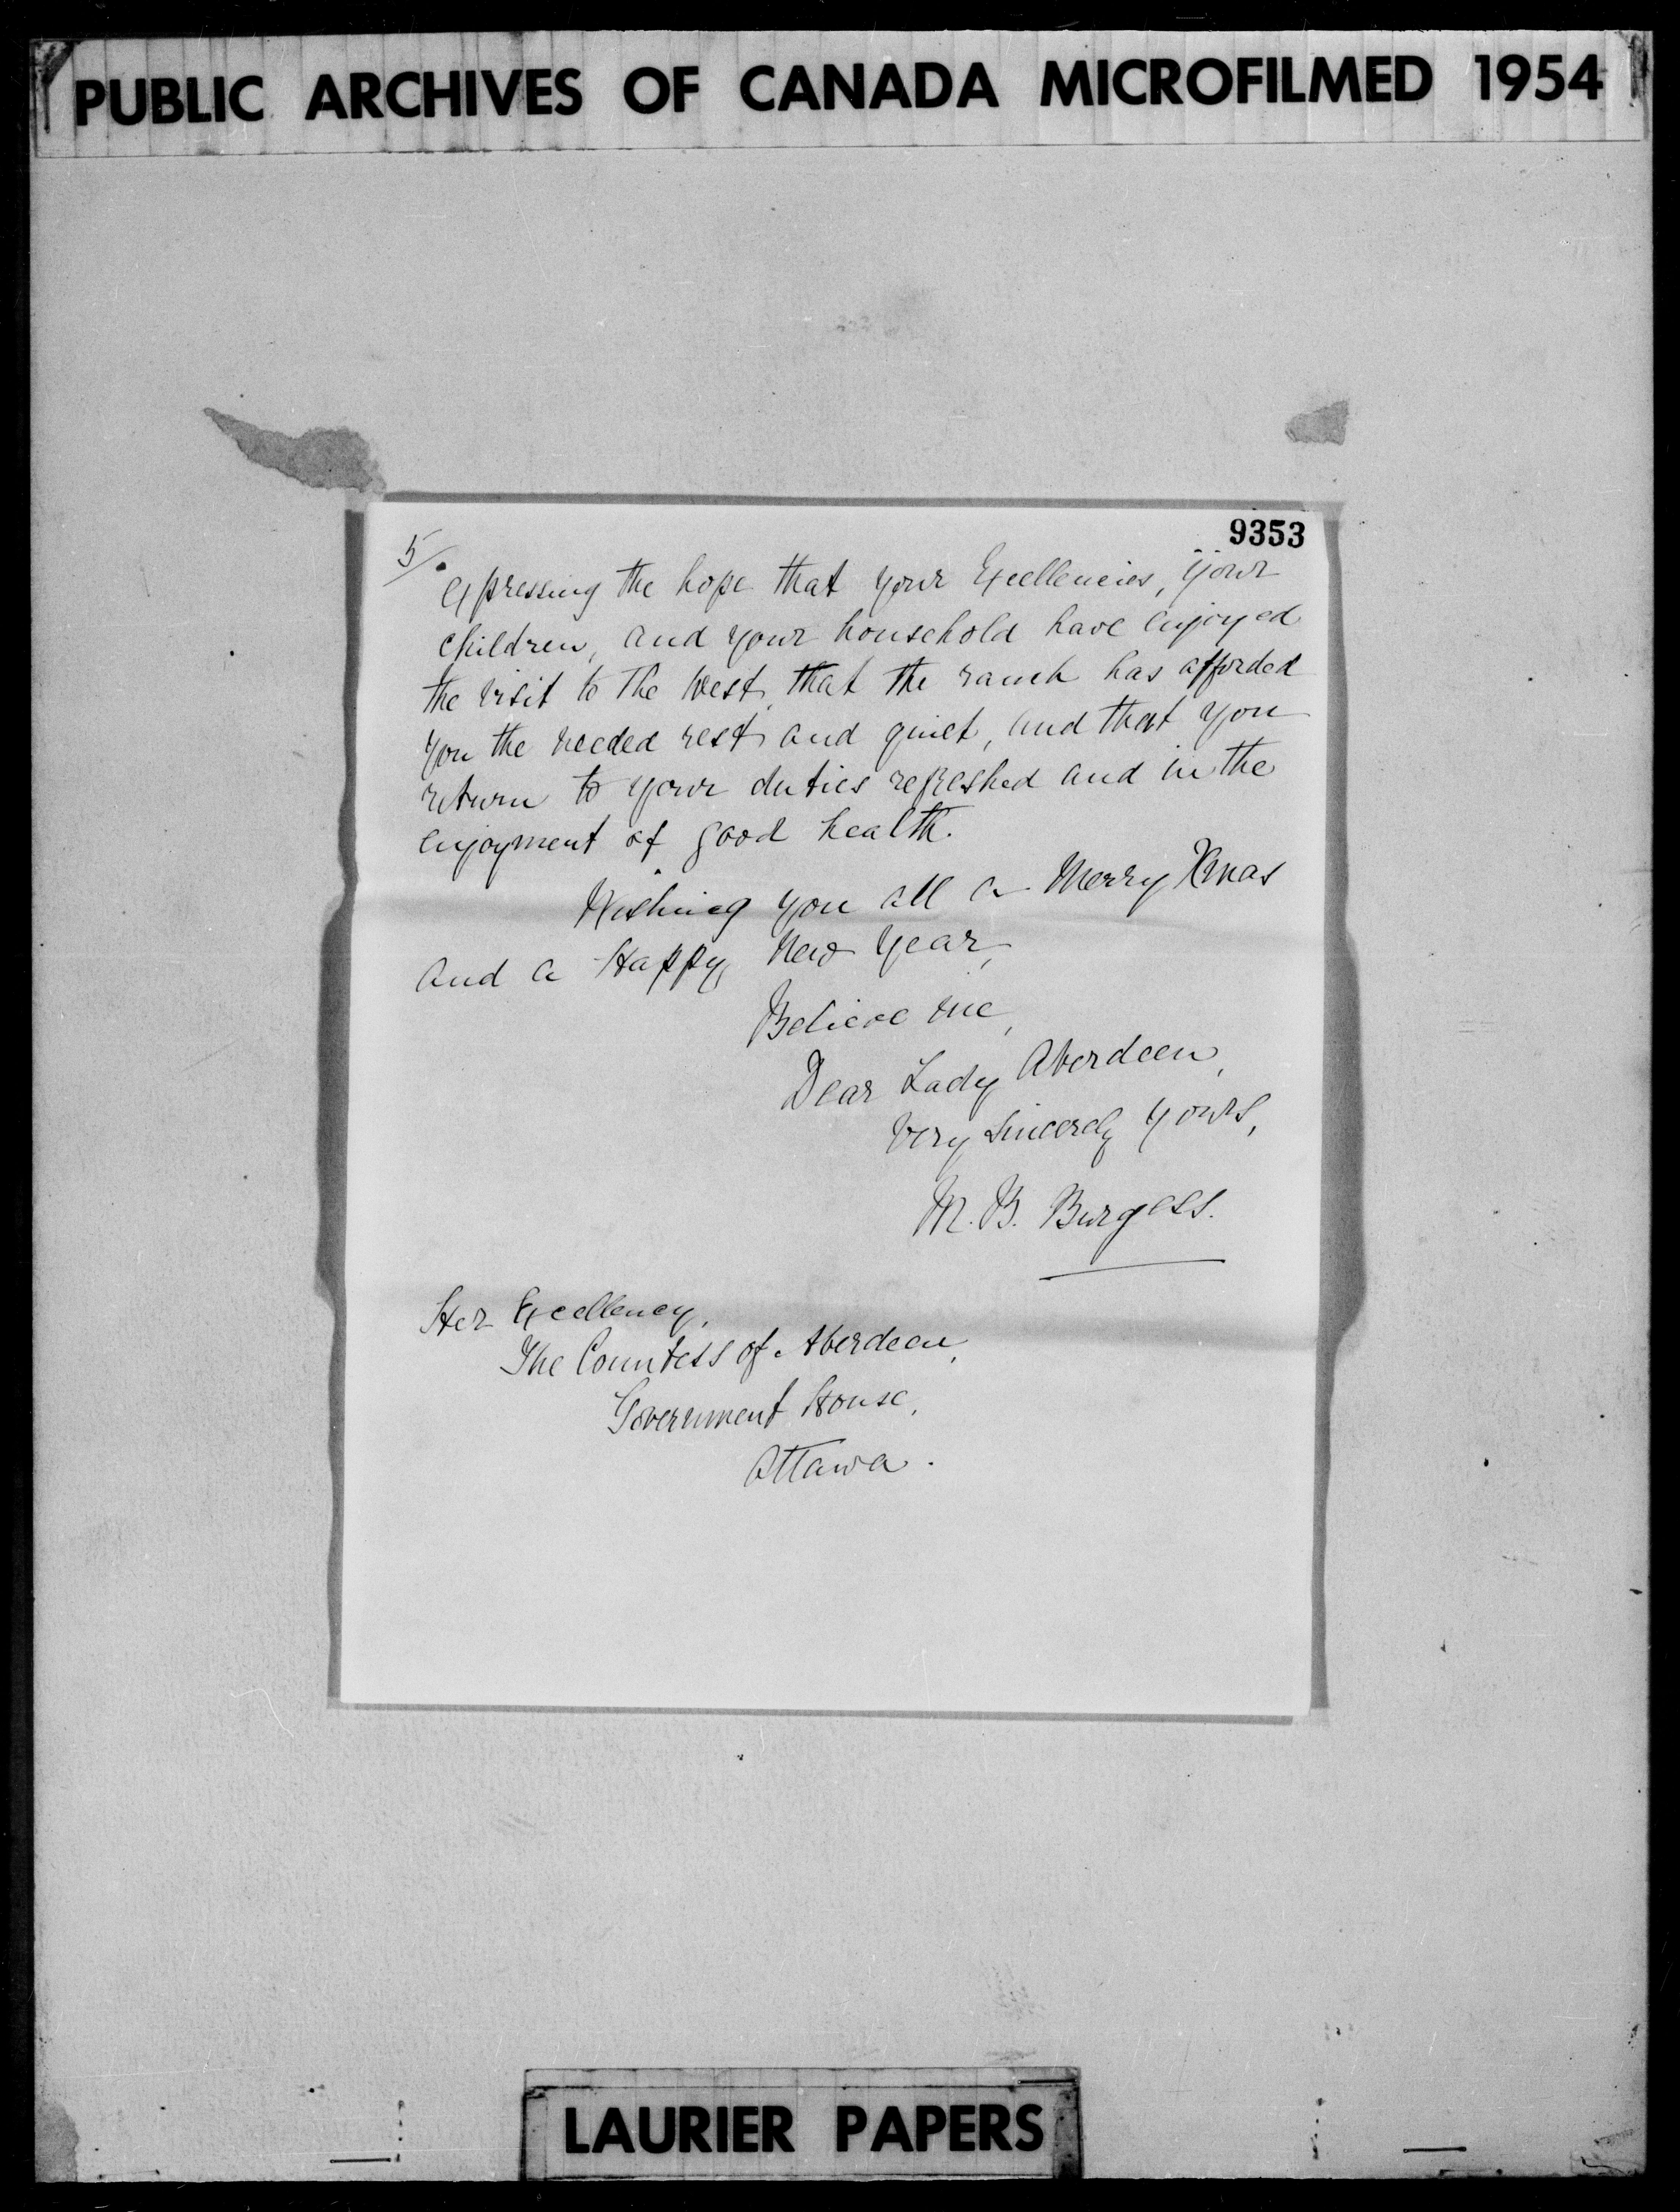 PUBLIC ARCHIVES OF CANADA MICROFILMED 1954
9353
5/.
expressing the hope that your Excellencies, your
children, and your household have enjoyed
the visit to the West, that the ranch has afforded
you the needed rest and quiet, and that you
return to your duties refreshed and in the
enjoyment of good health.
Wishing you all a Merry Xmas
and a Happy New Year,
Believe me,
Dear Lady Aberdeen,
Very Sincerely Yours,
M. B. Burgess.
Her Excellency,
The Countess of Aberdeen,
Government House,
Ottawa.
LAURIER PAPERS